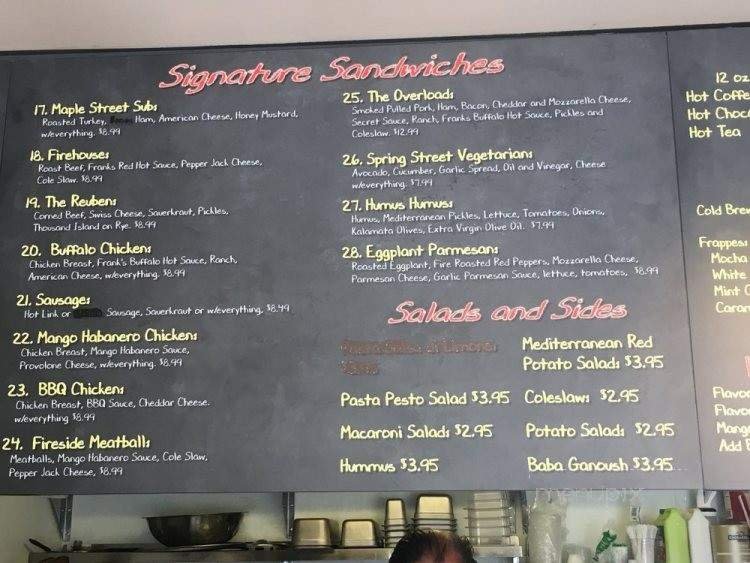 Signature Sandwiches
17. Maple Street Subs
Roasted Turkey, Ham, American Cheese, Honey Mustard,
w/everything. $8.99
18. Firehouse:
Roast Beef, Franks Red Hot Sauce, Pepper Jack Cheese,
Cole Slaw. $8.99
19. The Reuben:
Corned Beef, Swiss Cheese, Sauerkraut, Pickles,
Thousand Island on Rye. $8.99
20. Buffalo Chicken:
Chicken Breast, Frank's Buffalo Hot Sauce, Ranch,
American Cheese, w/everything. $8.99
21. Sausage:
Hot Link or Sausage, Sauerkraut or w/everything. $8.49
22. Mango Habanero Chicken:
Chicken Breast, Mango Habanero Sauce,
Provolone Cheese, w/everything. $8.99
23. BBQ Chicken:
Chicken Breast, BBQ Sauce, Cheddar Cheese.
w/everything $8.99
24. Fireside Meatball:
Meatballs, Mango Habanero Sauce, Cole Slaw,
Pepper Jack Cheese, $8.99
25. The Overload:
Smoked Pulled Pork, Ham, Bacon, Cheddar and Mozzarella Cheese,
Secret Sauce, Ranch, Franks Buffalo Hot Sauce, Pickles and
Coleslaw. $12.99
26. Spring Street Vegetarian:
Avocado, Cucumber, Garlic Spread, Oil and Vinegar, Cheese
w/everything. $7.99
27. Humus Humus:
Humus, Mediterranean Pickles, Lettuce, Tomatoes, Onions,
Kalamata Olives, Extra Virgin Olive Oil. $7.99
28. Eggplant Parmesan:
Roasted Eggplant, Fire Roasted Red Peppers, Mozzarella Cheese,
Parmesan Cheese, Garlic Parmesan Sauce, lettuce, tomatoes, $8.99
Salads and Sides
$3.95
Mediterranean Red
Potato Salad: $3.95
Pasta Pesto Salad $3.95
Coleslaw: $2.95
Macaroni Salad: $2.95
Potato Salad: $2.95
Hummus $3.95
Baba Ganoush $3.95
12 oz
Hot Coffe
Hot Choc
Hot Tea
Cold Brew
Frappes:
Mocha
White
Mint C
Caram
Flavo
Flavo
Mang
Add B
menupix